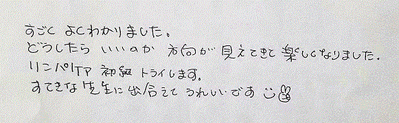 すごく よくわかりました。
どうしたら いいのか 方向が 見えてきて 楽しくなりました.
リンパケア 初級 トライします。
すてきな先生に 出会えて うれしいです